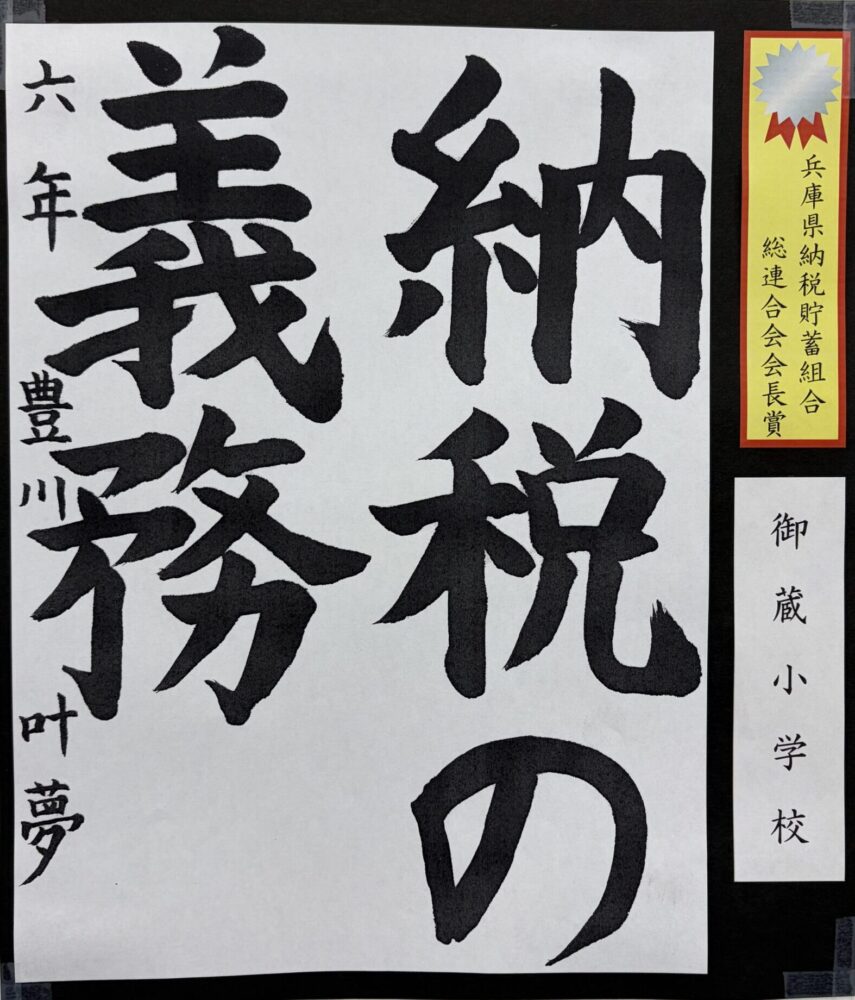 兵庫県納税貯蓄組合
総連合会会長賞
御蔵小学校
納税の
義務
六年 豊川 叶夢